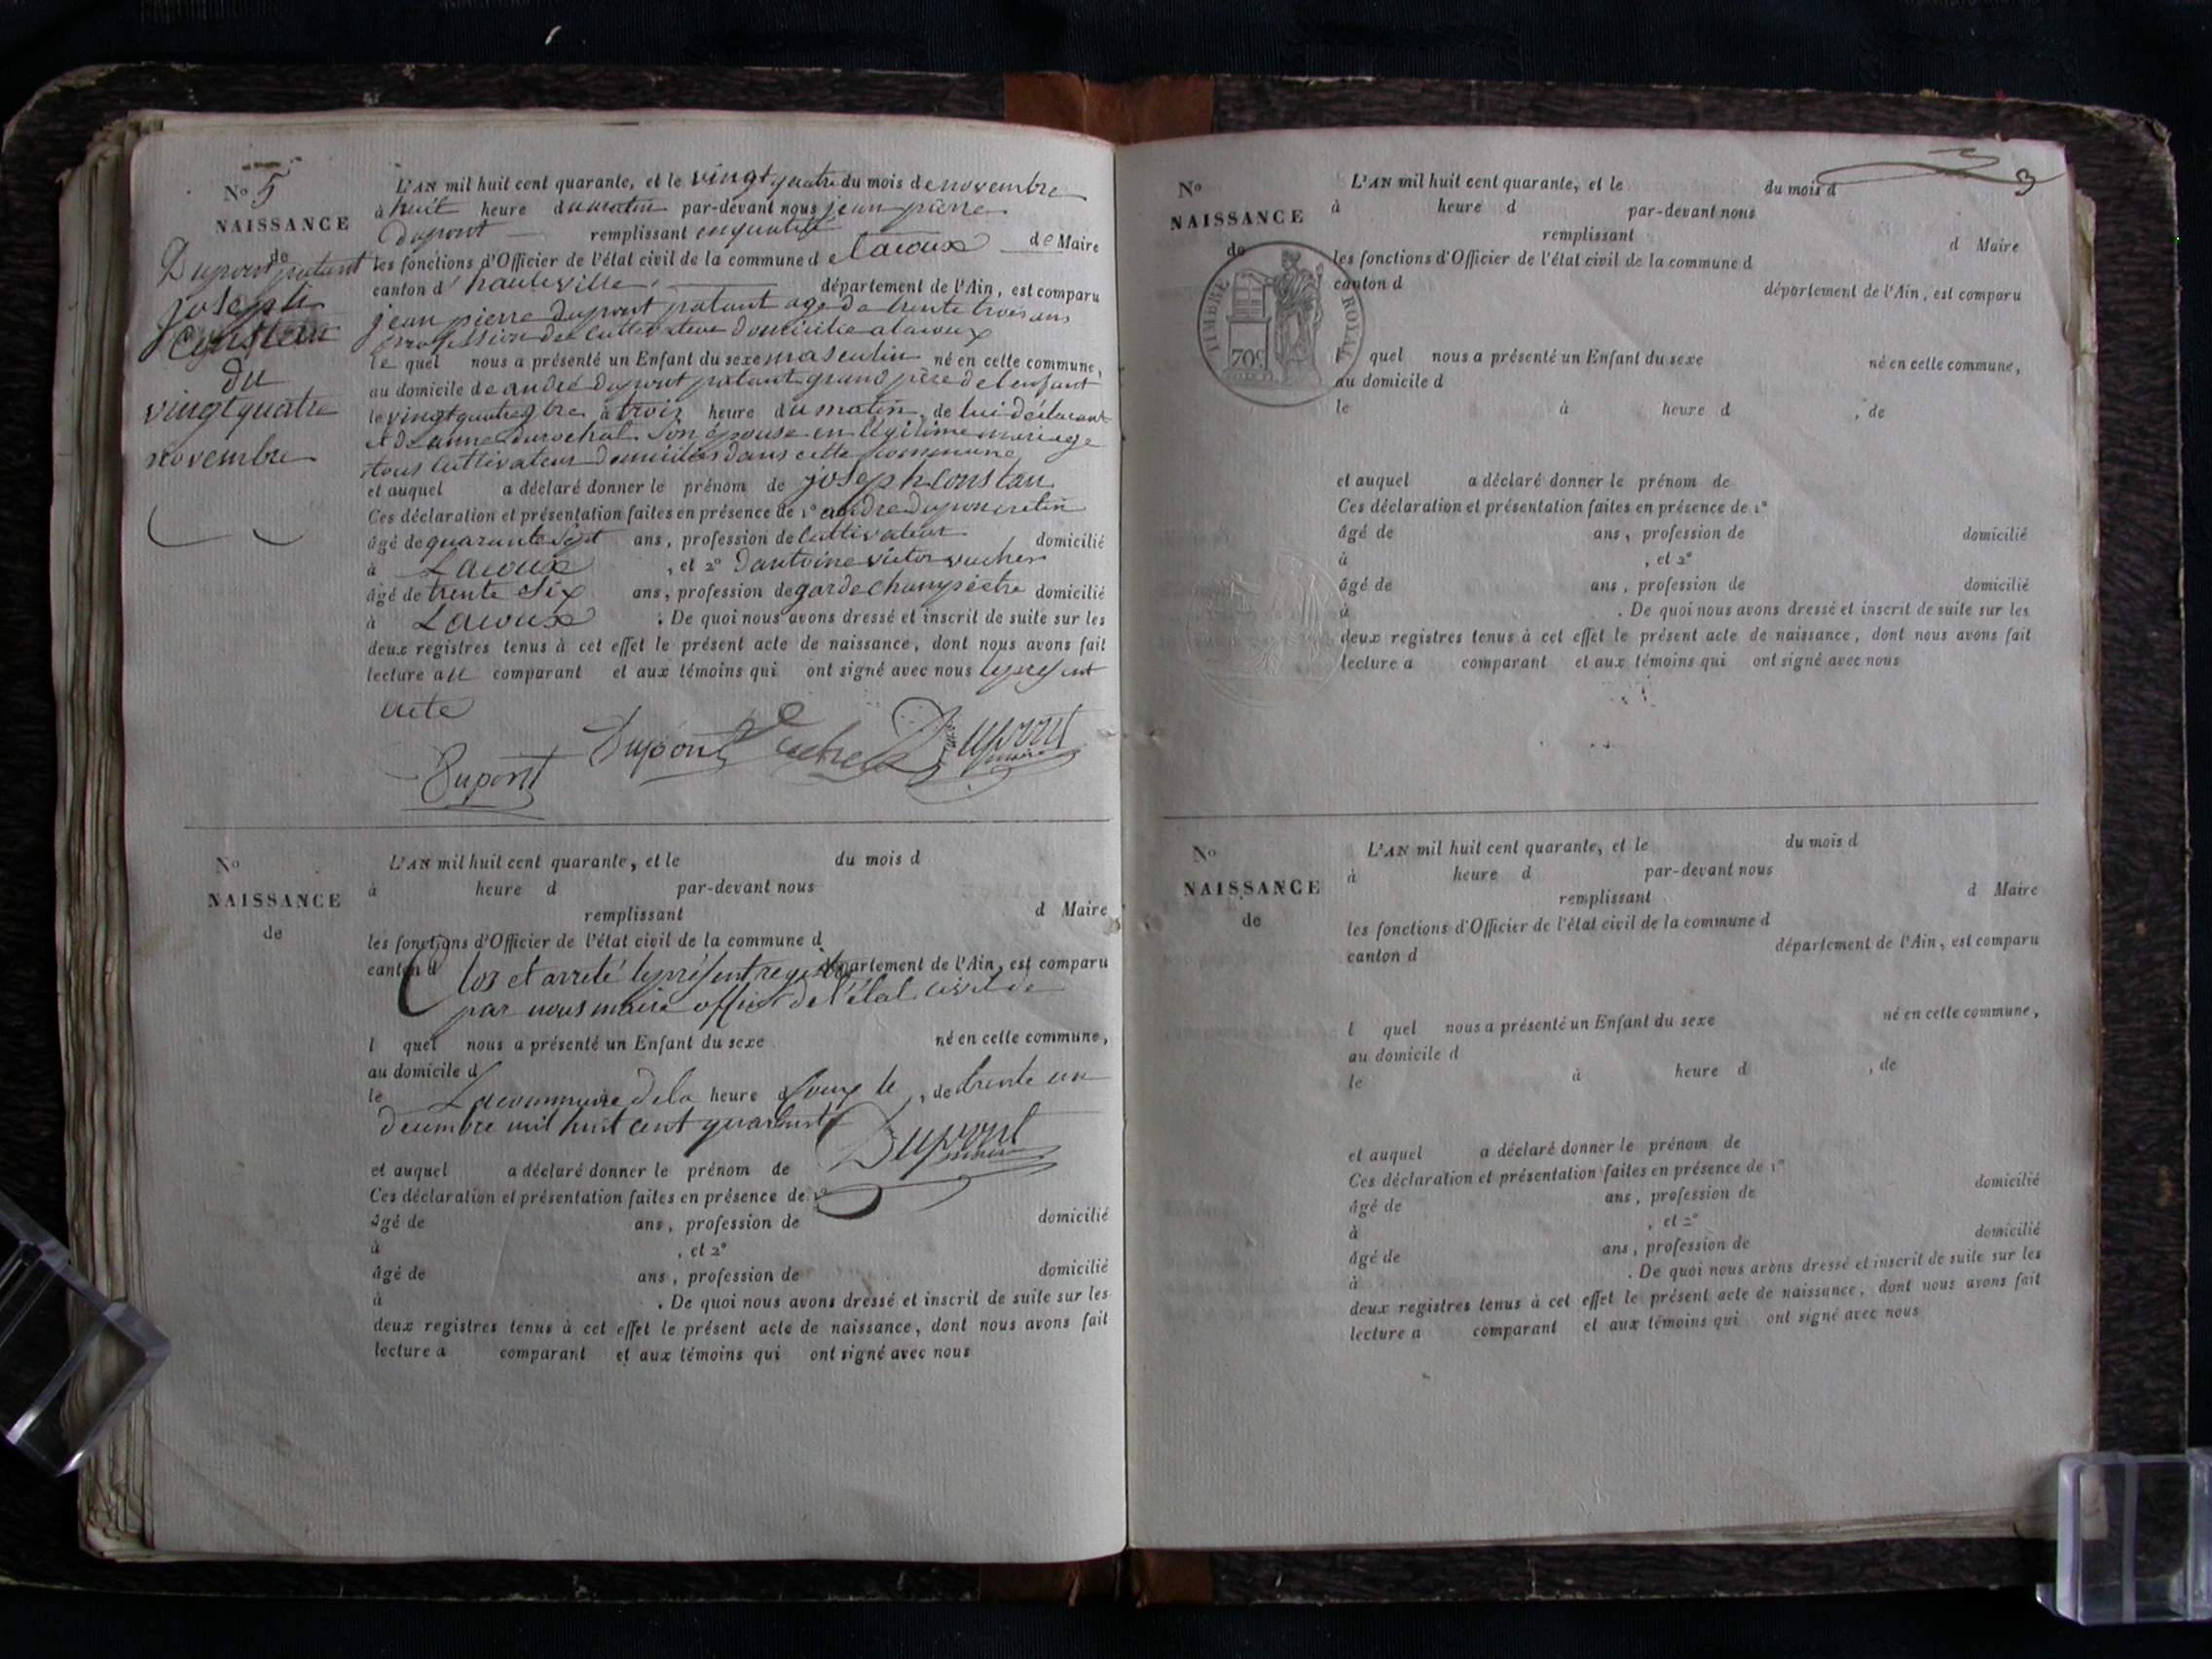 N° 5
NAISSANCE
de
Dupont patant
joseph
Constan
du
vingt quatre
novembre
L'AN mil huit cent quarante, et le vingt quatre du mois de novembre
à huit heure du matin par-devant nous jean pierre
Dupont remplissant en qualité de Maire
les fonctions d'Officier de l'état civil de la commune de lacoux
canton d'hauteville département de l'Ain, est comparu
jean pierre dupont patant age de trente trois ans
profession de cultivateur domicilie a lacoux
le quel nous a présenté un Enfant du sexe masculin né en cette commune,
au domicile de andré dupont patant grand père de l enfant
le vingt quatre 9bre à trois heure du matin, de lui déclarant
et de anne durochat son épouse en légitime mariage
tous cultivateur domiciliés dans cette commune
et auquel a déclaré donner le prénom de joseph Constan
Ces déclaration et présentation faites en présence de 1° andre dupon cretin
âgé de quarante sept ans, profession de cultivateur domicilié
à Lacoux, et 2° d antoine victor vucher
âgé de trente six ans, profession de garde champêtre domicilié
à Lacoux. De quoi nous avons dressé et inscrit de suite sur les
deux registres tenus à cet effet le présent acte de naissance, dont nous avons fait
lecture au comparant et aux témoins qui ont signé avec nous le present
acte
Dupont Dupont Vucher Dupont
maire
N°
NAISSANCE
de
L'AN mil huit cent quarante, et le du mois d
à heure d par-devant nous
remplissant d Maire
les fonctions d'Officier de l'état civil de la commune d
canton d département de l'Ain, est comparu
Clos et arreté le présent
par nous maire de l'état civil de
l quel nous a présenté un Enfant du sexe né en cette commune,
au domicile d
le à heure d, de
La commune de la coux le trente un
decembre mil huit cent quarante
Dupont
maire
et auquel a déclaré donner le prénom de
Ces déclaration et présentation faites en présence de 1°
âgé de ans, profession de domicilié
à, et 2°
âgé de ans, profession de domicilié
à. De quoi nous avons dressé et inscrit de suite sur les
deux registres tenus à cet effet le présent acte de naissance, dont nous avons fait
lecture a comparant et aux témoins qui ont signé avec nous
3
N°
NAISSANCE
de
TIMBRE ROYAL
70c
L'AN mil huit cent quarante, et le du mois d
à heure d par-devant nous
remplissant d Maire
les fonctions d'Officier de l'état civil de la commune d
canton d département de l'Ain, est comparu
l quel nous a présenté un Enfant du sexe né en cette commune,
au domicile d
le à heure d, de
et auquel a déclaré donner le prénom de
Ces déclaration et présentation faites en présence de 1°
âgé de ans, profession de domicilié
à, et 2°
âgé de ans, profession de domicilié
à. De quoi nous avons dressé et inscrit de suite sur les
deux registres tenus à cet effet le présent acte de naissance, dont nous avons fait
lecture a comparant et aux témoins qui ont signé avec nous
N°
NAISSANCE
de
L'AN mil huit cent quarante, et le du mois d
à heure d par-devant nous
remplissant d Maire
les fonctions d'Officier de l'état civil de la commune d
canton d département de l'Ain, est comparu
l quel nous a présenté un Enfant du sexe né en cette commune,
au domicile d
le à heure d, de
et auquel a déclaré donner le prénom de
Ces déclaration et présentation faites en présence de 1°
âgé de ans, profession de domicilié
à, et 2°
âgé de ans, profession de domicilié
à. De quoi nous avons dressé et inscrit de suite sur les
deux registres tenus à cet effet le présent acte de naissance, dont nous avons fait
lecture a comparant et aux témoins qui ont signé avec nous